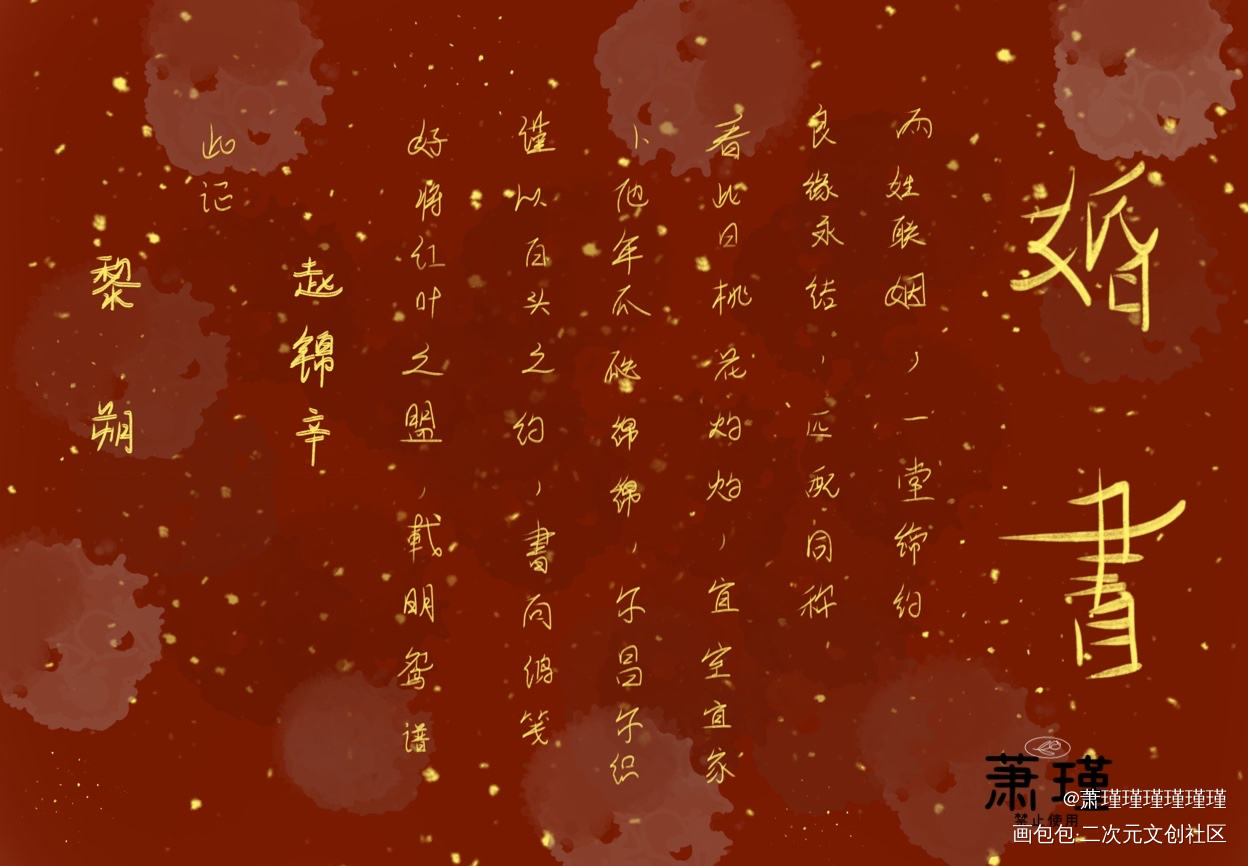 婚書
两姓联姻，一堂缔约
良缘永结，匹配同称，
看此日桃花灼灼，宜室宜家
卜他年瓜瓞绵绵，尔昌尔织
谨以白头之约，書向鸿笺
好将红叶之盟，載明鸳谱
赵锦辛
此记
黎朔
萧瑾
禁止使用
@萧瑾瑾瑾瑾瑾瑾
画包包·二次元文创社区